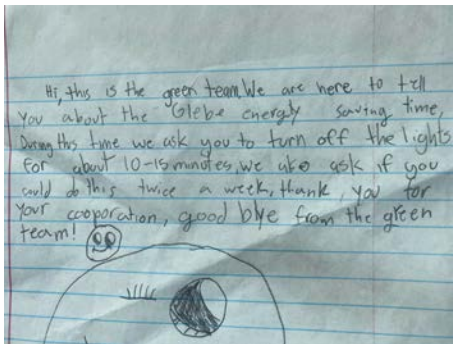 Hi, this is the green team. We are here to tell
you about the Glebe energly saving time,
During this time we ask you to turn off the lights
for about 10-15 minutes, we also ask if you
could do this twice a week, thank, you for
your cooporation, good bye from the green
team!